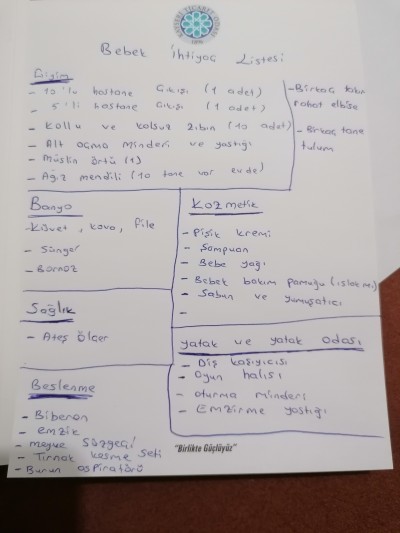 Bebek İhtiyaç Listesi
Giyim
- 10'lu hastane Çıkışı (1 adet)
- 5'li hastane Çıkışı (1 adet)
- Kollu ve kolsuz zıbın (10 adet)
- Alt açma minderi ve yastığı
- Müslin örtü (1)
- Ağız mendili (10 tane var evde)
- Birkaç takım
rahat elbise
- Birkaç tane
tulum
Banyo
- Küvet, kova, file
- Sünger
- Bornoz
Kozmetik
- Pişik kremi
- Şampuan
- Bebe yağı
- Bebek bakım pamuğu
- Sabun ve yumuşatıcı
-
Sağlık
- Ateş Ölçer
yatak ve yatak odası
- Diş kaşıyıcısı
- Oyun halısı
- Oturma minderi
- Emzirme yastığı
Beslenme
- Biberon
- emzik
- meyve süzgeci
- Tırnak kesme seti
- Burun aspiratörü
"Birlikte Güçlüyüz"